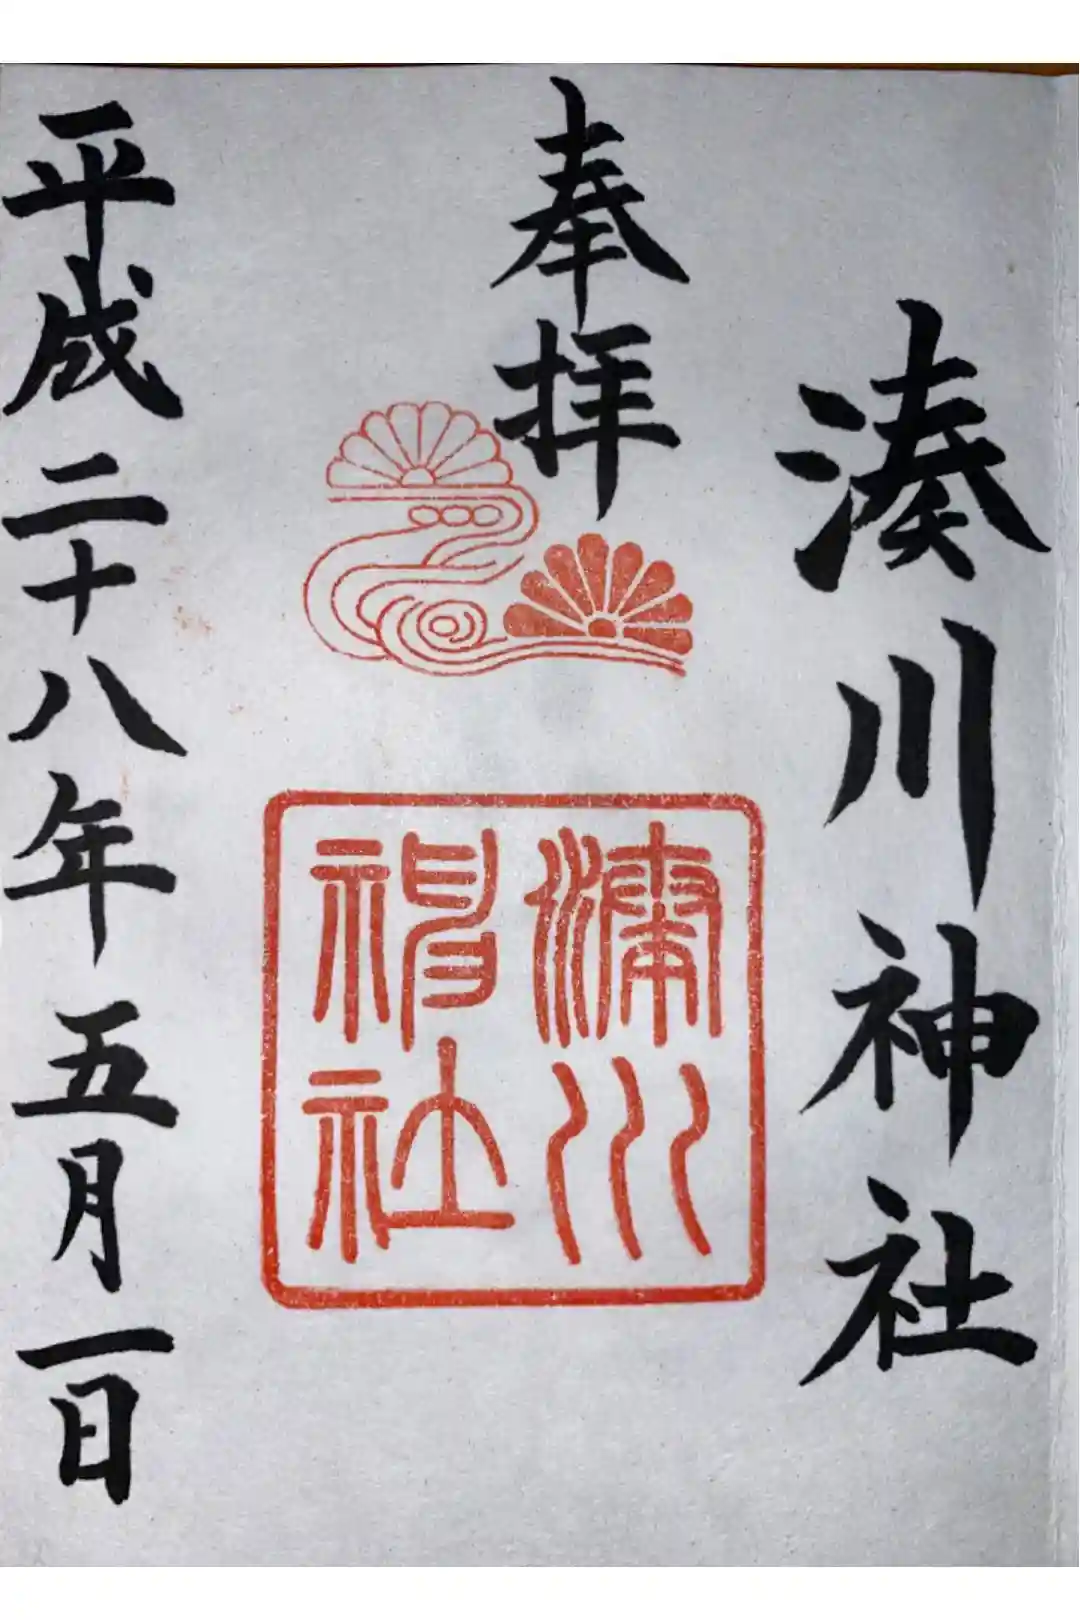 湊川神社
奉拝
湊川
神社
平成二十八年五月一日